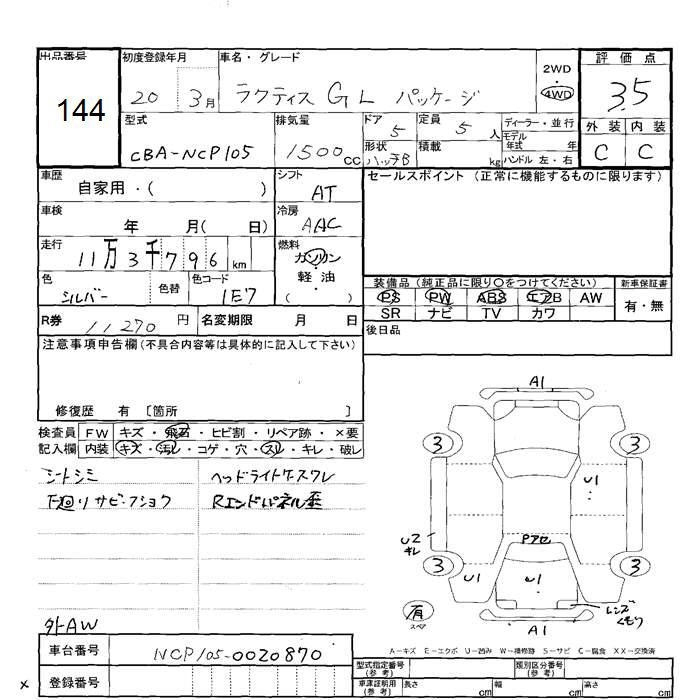 出品番号 初度登録年月 車名・グレード 評価点
144
20 3月 ラクティス GL パッケージ 2WD ・ 4WD 3.5
型式 排気量 ドア 5 定員 5 人 ディーラー・並行 外装 内装
CBA-NCP105 1500 cc 形状 ハッチB 積載 kg モデル年式 年 C C
ハンドル 左・右
車歴 自家用・( ) シフト AT セールスポイント (正常に機能するものに限ります)
車検 年 月( 日) 冷房 AAC
走行 11万3千796 km 燃料 ガソリン・軽・油 ( )
色 シルバー 色替 色コード 1E7
装備品 (純正品に限り○をつけてください) 新車保証書
PS PW ABS エアB AW 有・無
SR ナビ TV カワ
R券 11270 円 名変期限 月 日 後日品
注意事項申告欄 (不具合内容等は具体的に記入して下さい)
修復歴 有 [箇所 ]
検査員 FW キズ・飛石・ヒビ割・リペア跡・×要
記入欄 内装 キズ・汚レ・コゲ・穴・スレ・キレ・破レ
シートシミ ヘッドライトケースワレ
下廻りサビ・フショク Rエンドパネル歪
外AW
A1
3 3
U1
U2 キレ
Pアセ
3 3
U1 U1
有 スペア
レンズ くもり
A1
車台番号 NCP105-0020870
A-キズ E-エクボ U-凹み W-補修跡 S-サビ C-腐食 XX-交換済
× 登録番号
型式指定番号 (参考) 類別区分番号 (参考)
車庫証明用 (参考) 長さ cm 幅 cm 高さ cm